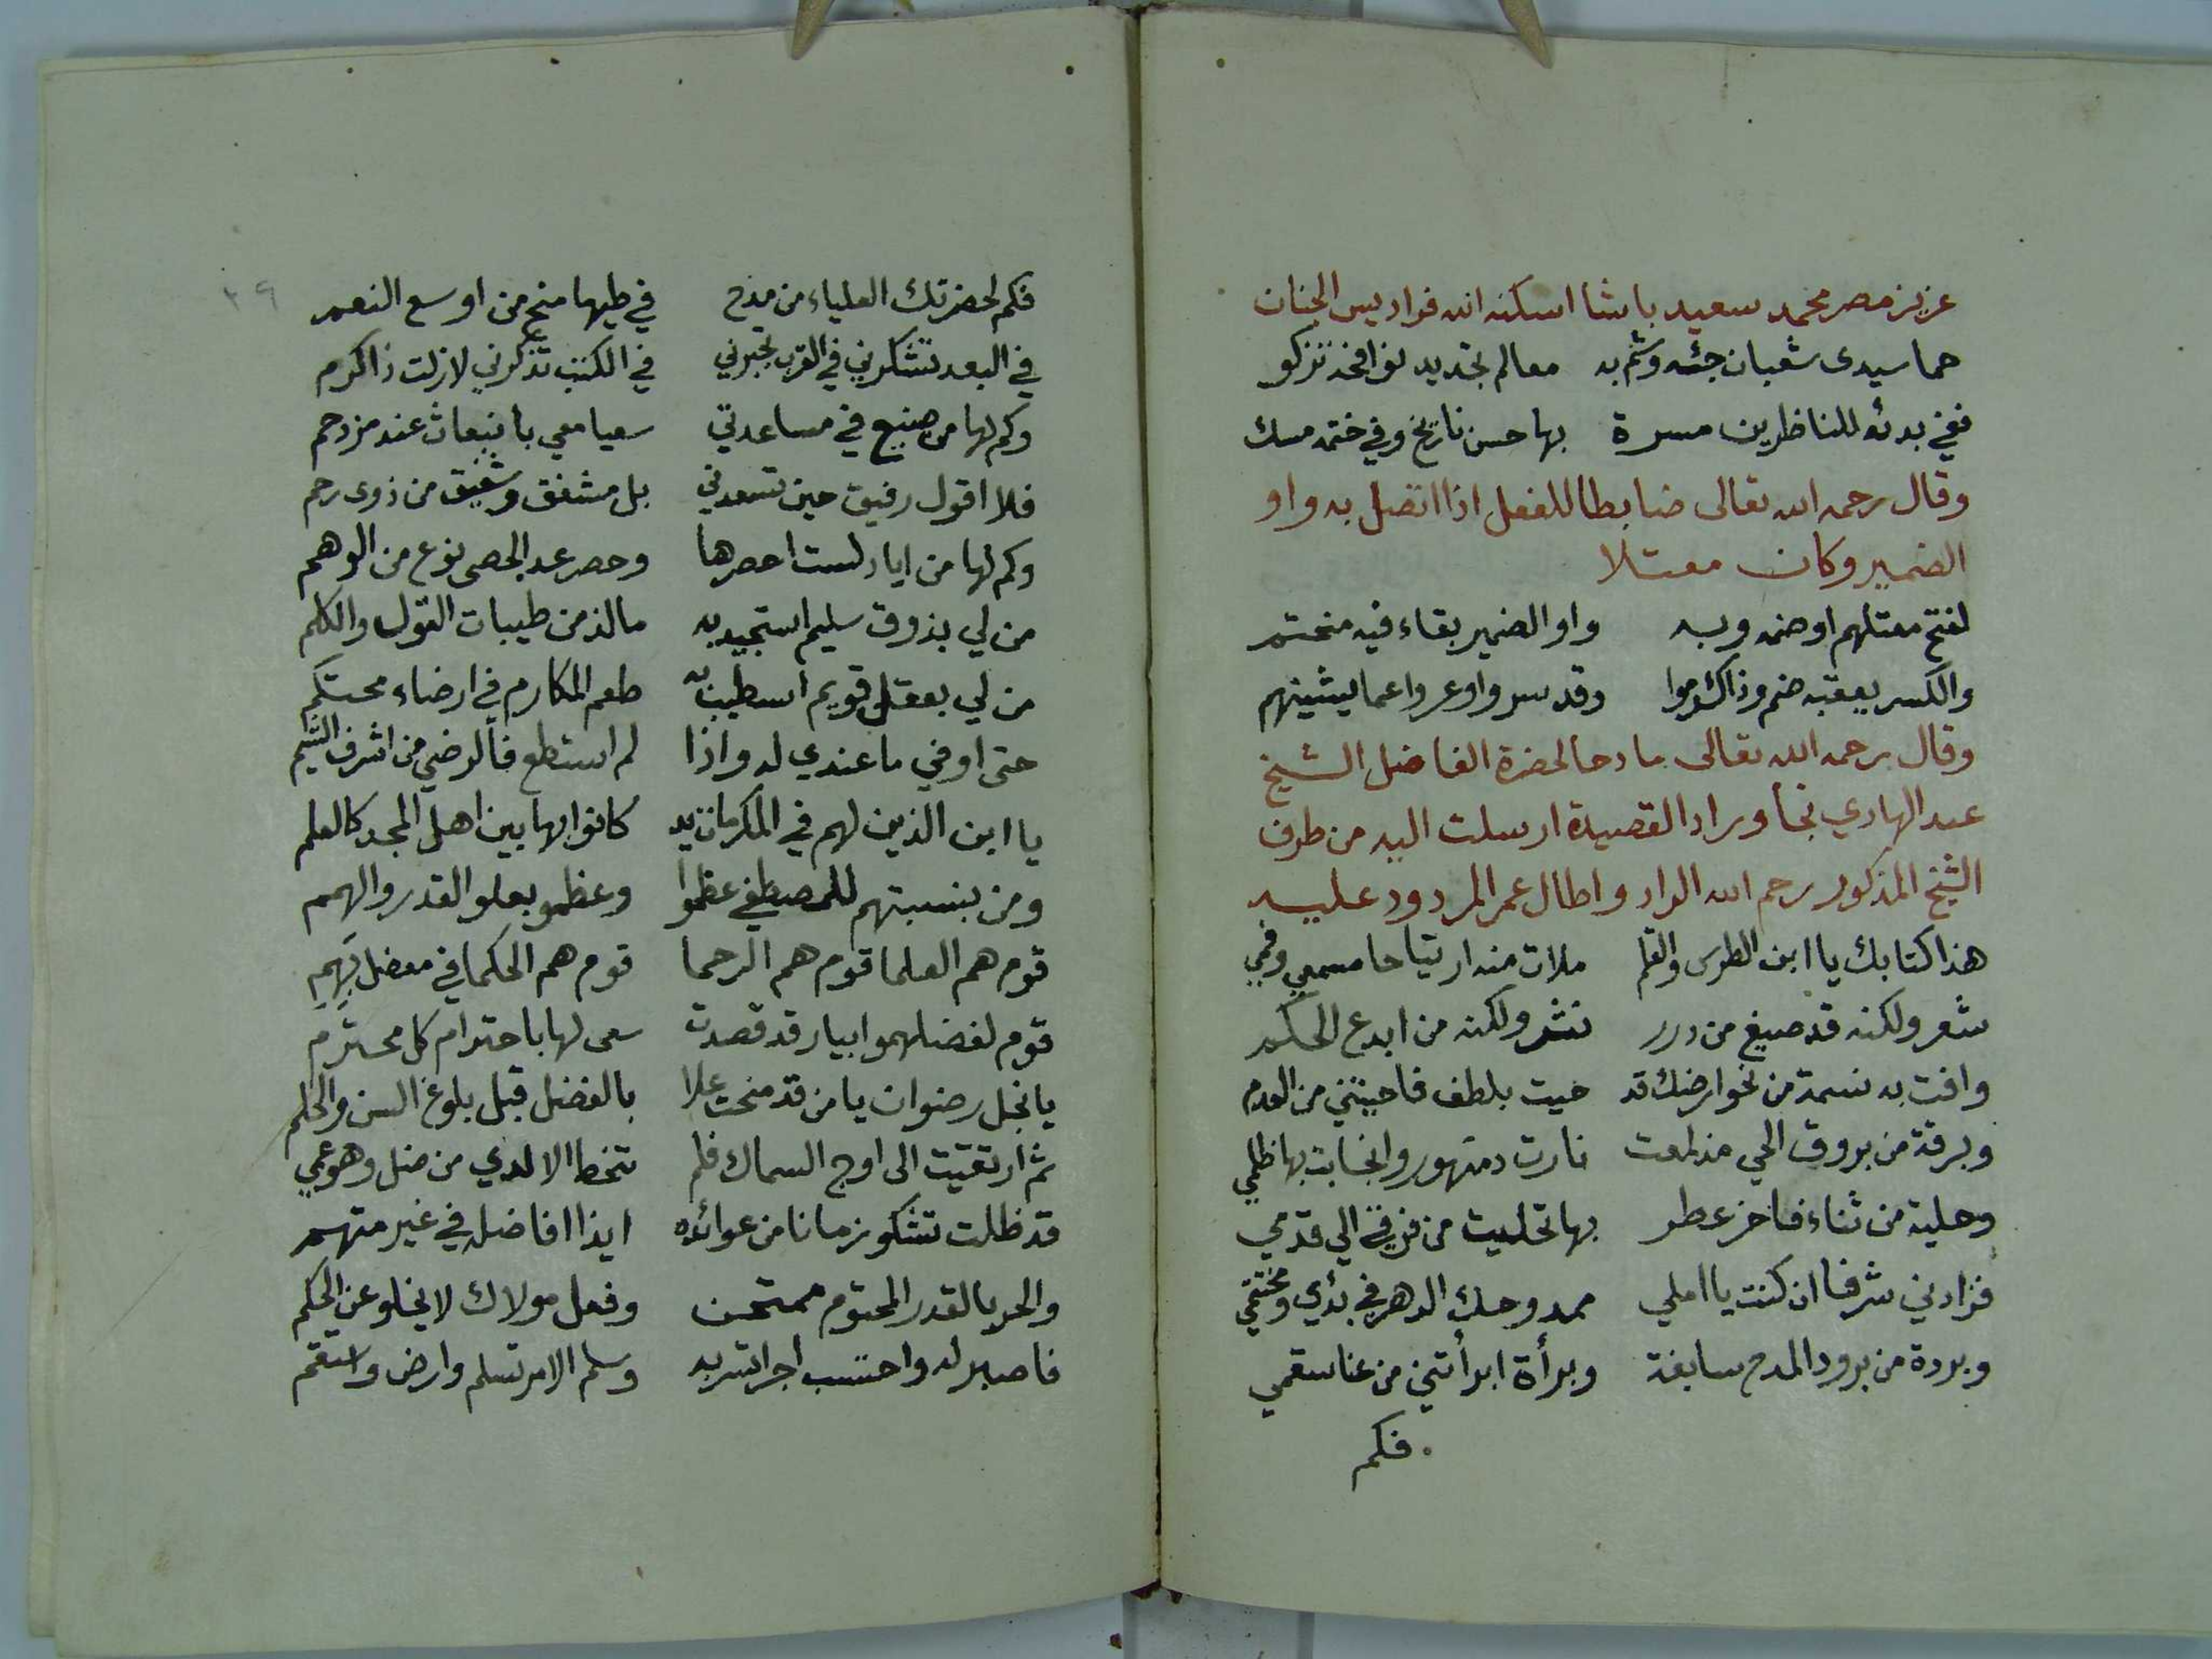 عزيز مصر محمد سعيد باشا اسكنه الله فراديس الجنان
حما سيدى شعبان جئه وشم به معالم تجديد نوافخه تزكو
ففي بدئه للناظرين مسرة بها حسن تاريخ وفي ختمه مسك
وقال رحمه الله تعالى ضابطا للفعل اذا اتصل به واو
الضمير وكان معتلا
لفتح معتلهم او ضمه وبه واو الضمير بقاء فيه منحتم
والكسر يعقبه ضم وذاك وقد سروا وعروا عما يشينهم
وقال رحمه الله تعالى مادحا لحضرة الفاضل الشيخ
عبد الهادي نجا ورادا لقصيدة ارسلت اليه من طرف
الشيخ المذكور رحم الله الراد واطال عمر المردود عليه
هذا كتابك يا ابن الطرس والقلم ملات منه ارتياحا مسمعي وفمي
شعر ولكنه قد صيغ من درر نثر ولكنه من ابدع الحكم
وافت به نسمة من نحو ارضك قد حيت بلطف فاحيتني من العدم
وبرقة من بروق الحي مذ لمعت نارت دمنهور وانجابت بها ظلمي
وحلية من ثناء فاخر عطر بها تحليت من فرقي الى قدمي
فزادني شرفا ان كنت يا املي ممدوحك الدهر في بدئي ومختتمي
وبردة من برود المدح سابغة وبرأة ابرأتني من عنا سقمي
فكم
٣٩
فكم لحضرتك العلياء من مدح في طيها منح من اوسع النعم
في البعد تشكرني في القرب تجبرني في الكتب تذكرني لا زلت ذا كرم
وكم لها من صنيع في مساعدتي سعيا معي بانبعاث عند مزدحم
فلا اقول رفيق حين تسعدني بل مشفق وشفيق من ذوى رحم
وكم لها من اياد لست احصرها وحصر عد الحصى نوع من الوهم
من لي بذوق سليم استجيد به مالذ من طيبات القول والكلم
من لي بعقل قويم استطيب به طعم المكارم في ارضاء محتكم
حتى اوفي ما عندي له واذا لم استطع فالرضي من اشرف الشيم
يا ابن الذين لهم في المكرمات يد كانوا بها بين اهل المجد كالعلم
ومن بنسبتهم للمصطفي عظموا وعظمو بعلو القدر والهمم
قوم هم العلما قوم هم الرحما قوم هم الحكما في معضل بهم
قوم لفضلهموا بيار قد قصدت سعى لها باحترام كل محترم
يا نجل رضوان يا من قد منحت علا بالفضل قبل بلوغ السن والحلم
ثم ارتقيت الى اوج السماك فلم تخط الا لدي من ضل وهو عمي
قد ظلت تشكو زمانا من عوائده ايذا افاضله في غير متهم
والحر بالقدر المحتوم ممتحن وفعل مولاك لا يخلو عن الحكم
فاصبر له واحتسب اجرا تسر به وسلم الامر تسلم وارض واستقم